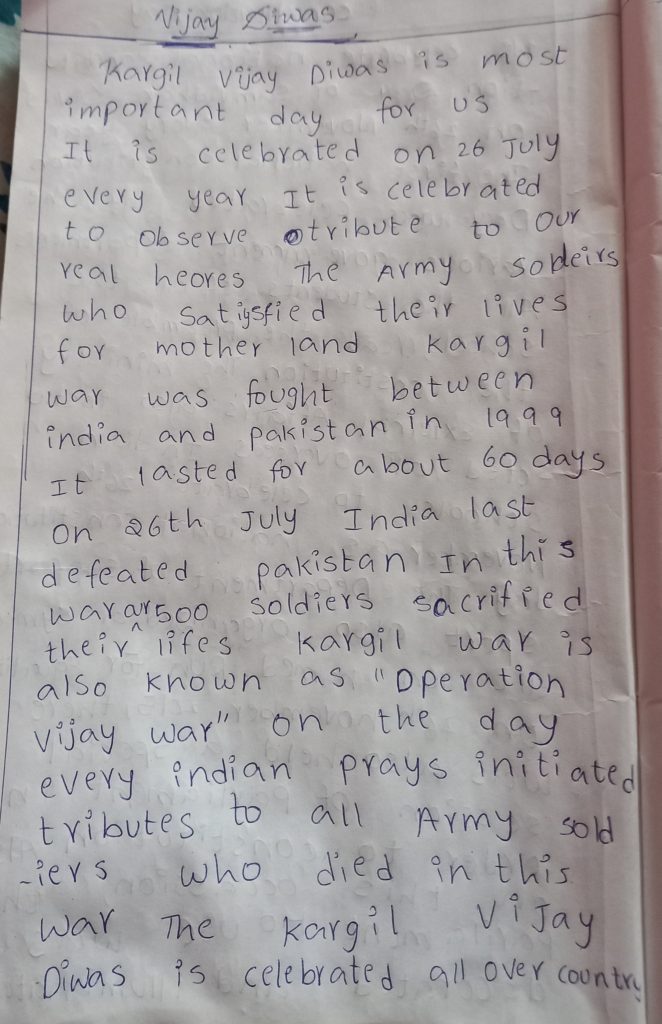 Vijay Diwas
Kargil Vijay Diwas is most
important day for us
It is celebrated on 26 July
every year It is celebrated
to observe tribute to our
real heores The Army soldeirs
who satisfied their lives
for mother land kargil
war was fought between
india and pakistan in 1999
It lasted for about 60 days
On 26th July India last
defeated pakistan In this
war 500 soldiers sacrified
their lifes kargil war is
also known as "Operation
vijay war" on the day
every indian prays initiated
tributes to all Army sold
-iers who died in this
war The kargil Vijay
Diwas is celebrated all over country